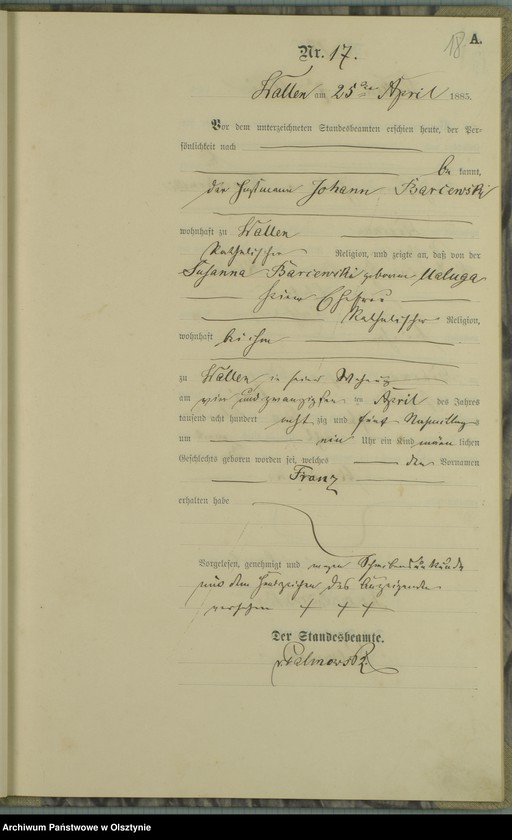 18. A.
Nr. 17.
Wallen am 25ten April 1885.
Vor dem unterzeichneten Standesbeamten erschien heute, der Per-
sönlichkeit nach
be kannt,
der Johann Barcewski
wohnhaft zu Wallen
Katholischer Religion, und zeigte an, daß von der
Susanna Barcewski geborene Maluga
seiner Ehefrau
Katholischer Religion,
wohnhaft bei ihm
zu Wallen in seiner Wohnung
am vier und zwanzigsten ten April des Jahres
tausend acht hundert acht zig und fünf Nachmittags
um ein Uhr ein Kind männ lichen
Geschlechts geboren worden sei, welches den Vornamen
Franz
erhalten habe
Vorgelesen, genehmigt und wegen Schreibensunkunde
mit dem Handzeichen des Anzeigenden
versehen + + +
Der Standesbeamte.
Archiwum Państwowe w Olsztynie